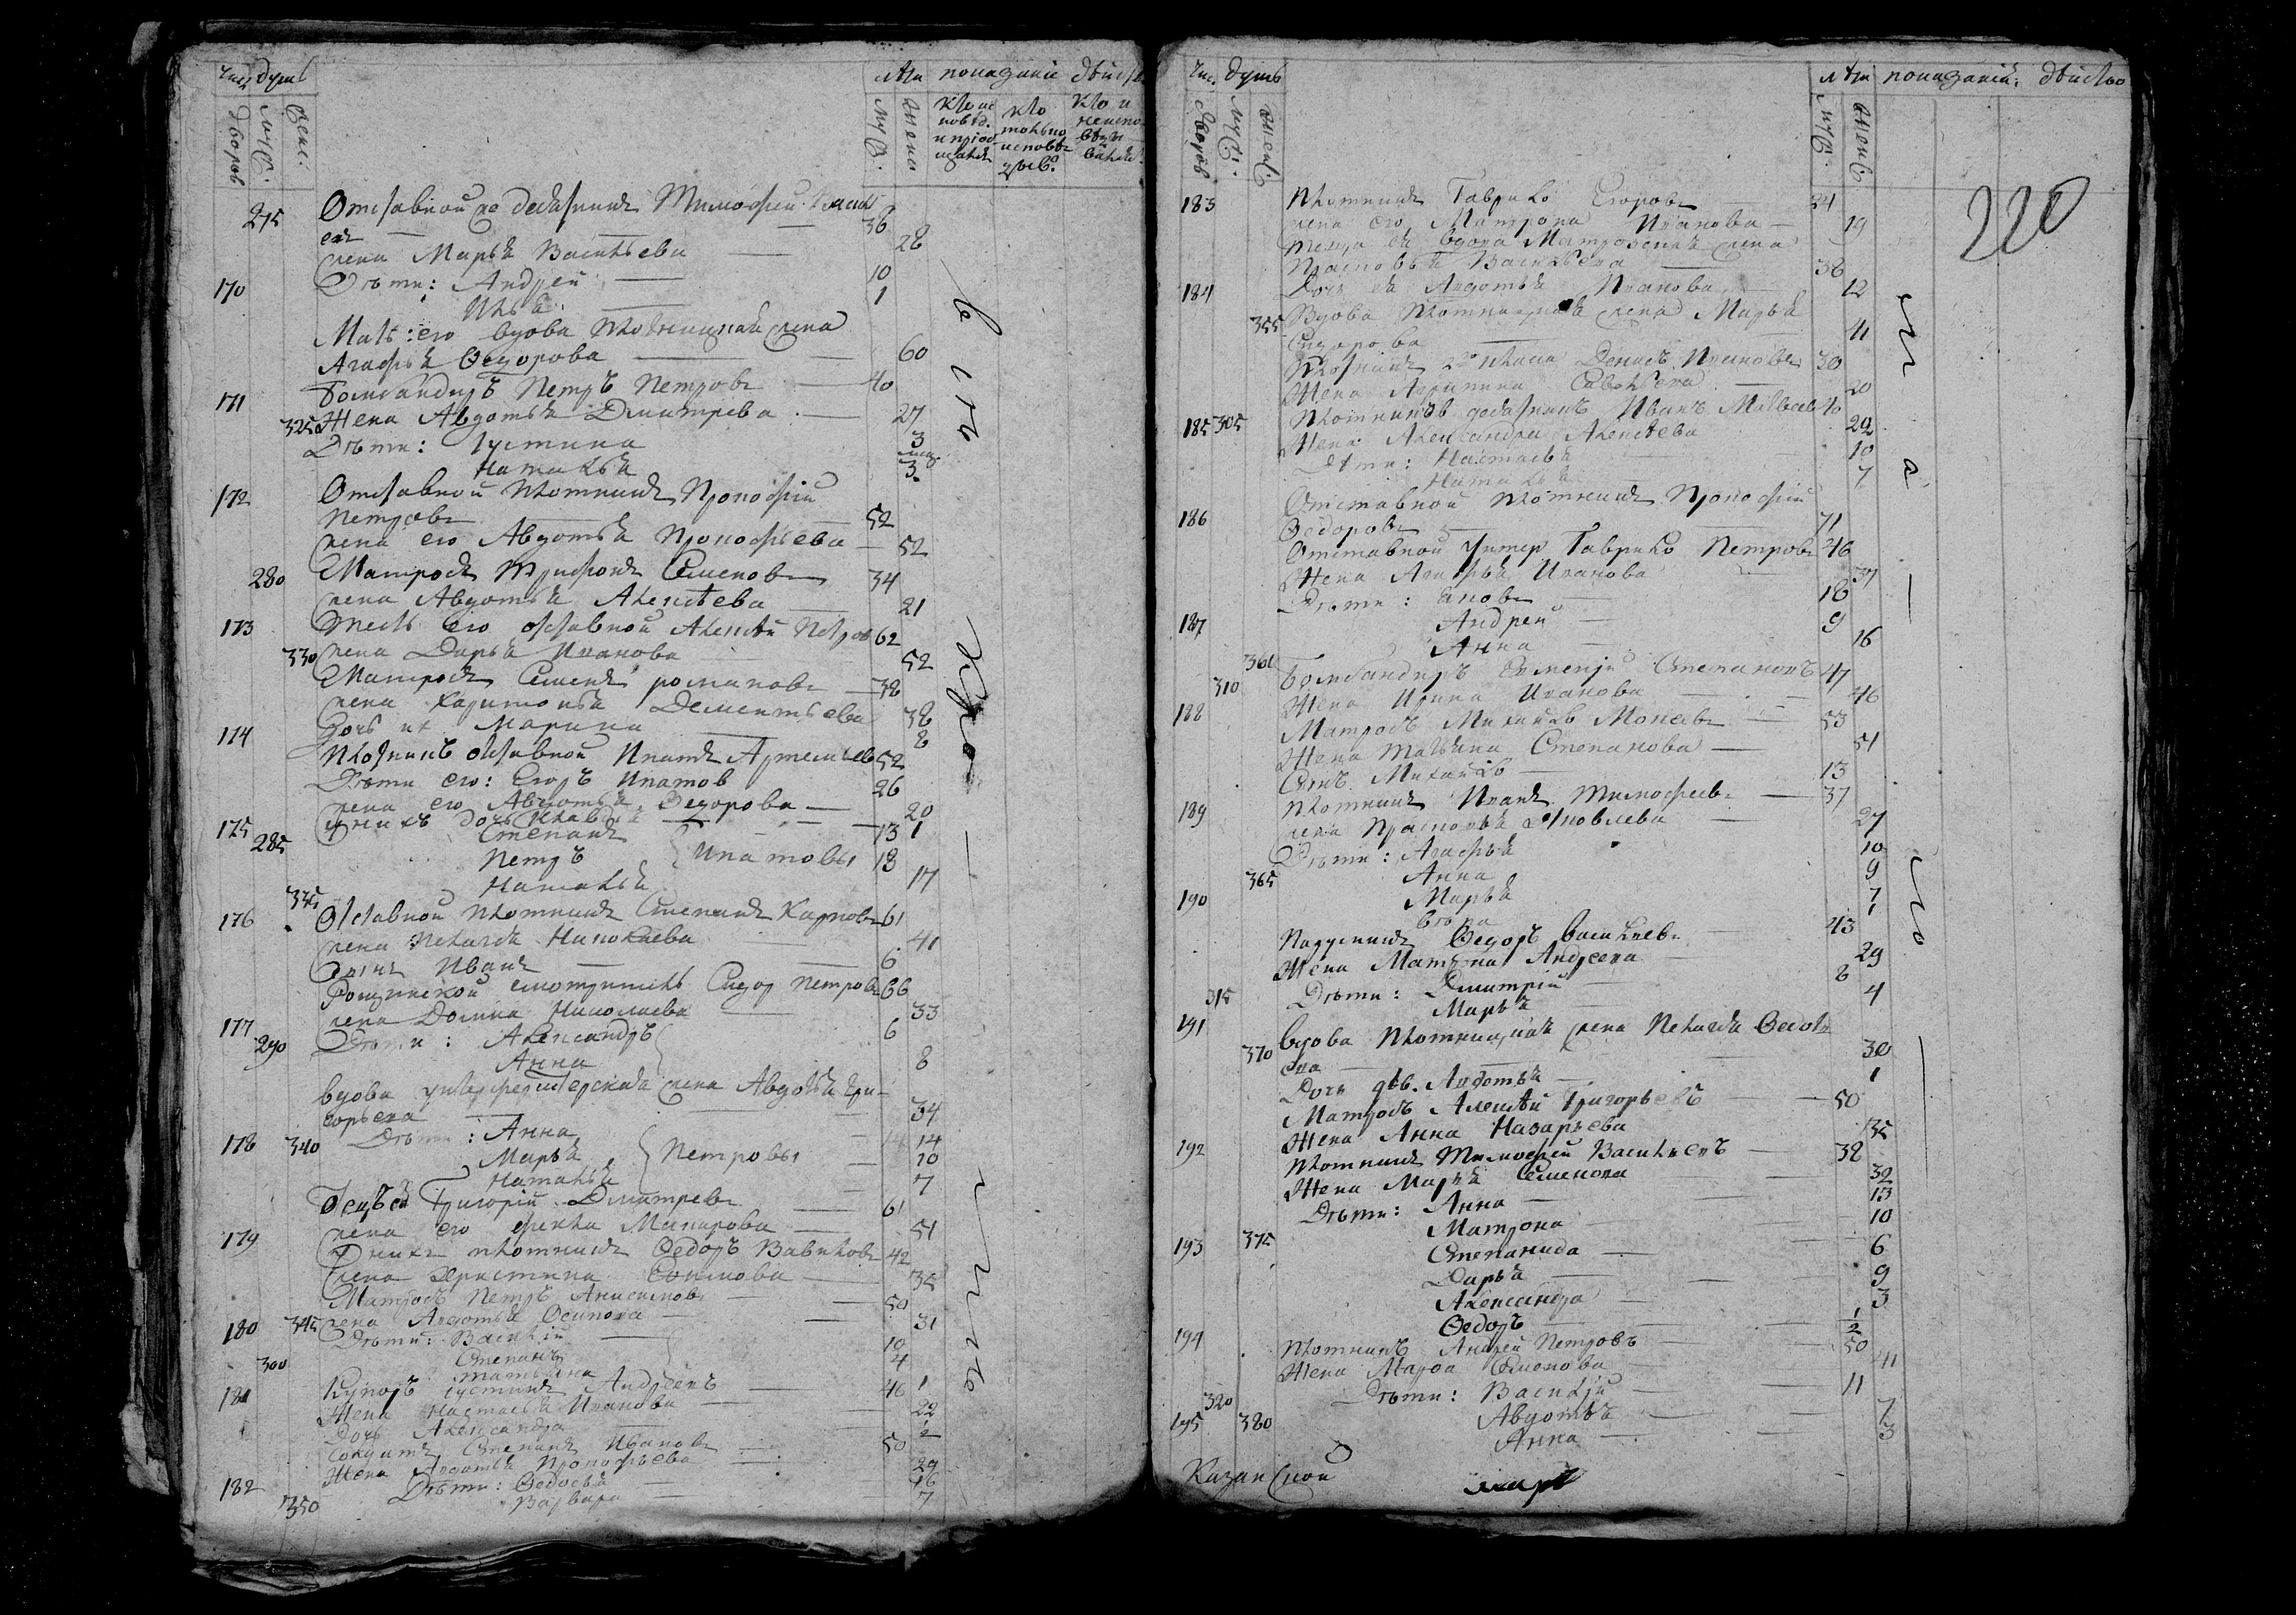 Чис. душъ
лѣта показаніе дѣйств
дворовъ
муж.
женс.
муж.
женс
кто ис
повѣд.
и пріоб
щался
кто
только
исповѣ
дыв.
кто и
неиспо
вѣд
вался
275 Отставной де десятникъ Тимофей Василь
евъ — 36
жена Марья Васильева — 28
170 Дѣти: Андрей — 10
Илья — 1
Мать его вдова плотницкая жена
Агафья Ѳедорова — 60
171 Бомбандиръ Петръ Петровъ — 40
325 Жена Авдотья Дмитрева — 27
Дѣти: Устина 3
Наталья 3
172 Отставной плотникъ Прокофій
Петровъ — 52
жена его Авдотья Прокофьева — 52
280 Матрозъ Трифонъ Семеновъ 34
жена Авдотья Алексѣева — 21
173 Тесть его отставной Алексѣй Петров 62
330 жена Дарья Иванова 52
Матрозъ Семенъ романовъ — 38
жена Харитонья Дементьева 38
174 Дочь их Марина 8
Плотникъ отставной Ипатъ Артемьевъ 52
Дѣти его: Егоръ Ипатов 26
жена его Авдотья Ѳедорова — 20
у нихъ дочь — 1
175 285 Степанъ 13
Петръ Ипатовы 18
Наталья 17
335
176 Отставной плотникъ Степанъ Карповъ 61
жена Пелагея Николаева 41
Сынъ Иванъ — 6
Рощинской смотритель Сидор Петровъ 66
жена Домна Николаева 33
177 290 Дѣти: Александръ 6
Анна 8
вдова унтерофецерская жена Авдотья Гри-
горьева 34
178 340 Дѣти: Анна 14
Марья Петровы — 10
Наталья — 7
Григорій Дмитревъ — 61
179 жена его Фекла Макарова — 51
У нихъ плотникъ Ѳедоръ Вавиловъ 42
жена Христина — 35
Матрозъ Петръ Анисимовъ — 50
180 345 жена Авдотья Осипова — 31
Дѣти: Василій 10
300 Степанъ 4
Татьяна 1
181 Купоръ Устинъ Андреевъ — 46
Жена Настасья Иванова — 22
Дочь Александра — 1/2
Солдатъ Степанъ Ивановъ — 50
Жена Авдотья Прокофьева — 29
182 Дѣти: Ѳедосья 16
350 Варвара — 7
всѣ
Чис. душъ
лѣта показаніе. дѣйство
дворовъ
муж.
женс
муж.
женс
220
183 Плотникъ Гаврило Егоровъ — 34
жена его Матрона Иванова — 19
теща ея вдова Матрозская жена
Прасковья Васильева — 38
184 Дочь ея Авдотья Иванова 12
355 Вдова плотницкая жена Марья
Сидорова 41
Плотникъ 2го класа Денисъ Ивановъ 30
Жена Агрипина Савельева — 20
185 305 Плотниковъ десятникъ Иванъ Матвеевъ 40
Жена Александра Алексѣева 22
Дѣти: Настасья 10
Наталья 7
Отставной плотникъ Прокофій
186 Ѳедоровъ — 71
Отставной унтер Гаврило Петровъ 46
Жена Агафья Иванова 37
Дѣти: Яковъ — 18
187 Андрей — 9
Анна — 16
360
310 Бомбандиръ Степановъ 47
Жена Ирина Иванова — 46
188 Матрозъ Михайло — 53
Жена Татьяна Степанова — 51
Сынъ Михайло — 13
189 Плотникъ Иванъ Тимофеевъ — 37
жена Прасковья Яковлева — 27
Дѣти: Агафья 10
365 Анна 9
190 Марья 7
Вѣра 1
Парусникъ Ѳедоръ Васильевъ — 43
Жена Матрона Андреева — 29
315 Дѣти: Дмитрій — 8
Марья 4
191 вдова Плотницкая жена Пелагея Ѳедот
370 ова — 30
Дочь дѣв. Авдотья — 1
Матрозъ Алексѣй Григорьевъ — 50
Жена Анна Назарьева 35
192 Плотникъ Тимофей Васильевъ — 38
Жена Марья Семенова 32
Дѣти: Анна — 13
Матрона 10
193 375 Степанида — 6
Дарья — 9
Александра — 3
Ѳедоръ — 1/2
194 Плотникъ Андрей Петровъ 50
Жена Марѳа Семенова — 41
320 Дѣти: Василій — 11
195 380 Авдотья — 7
Анна — 3
Казанской